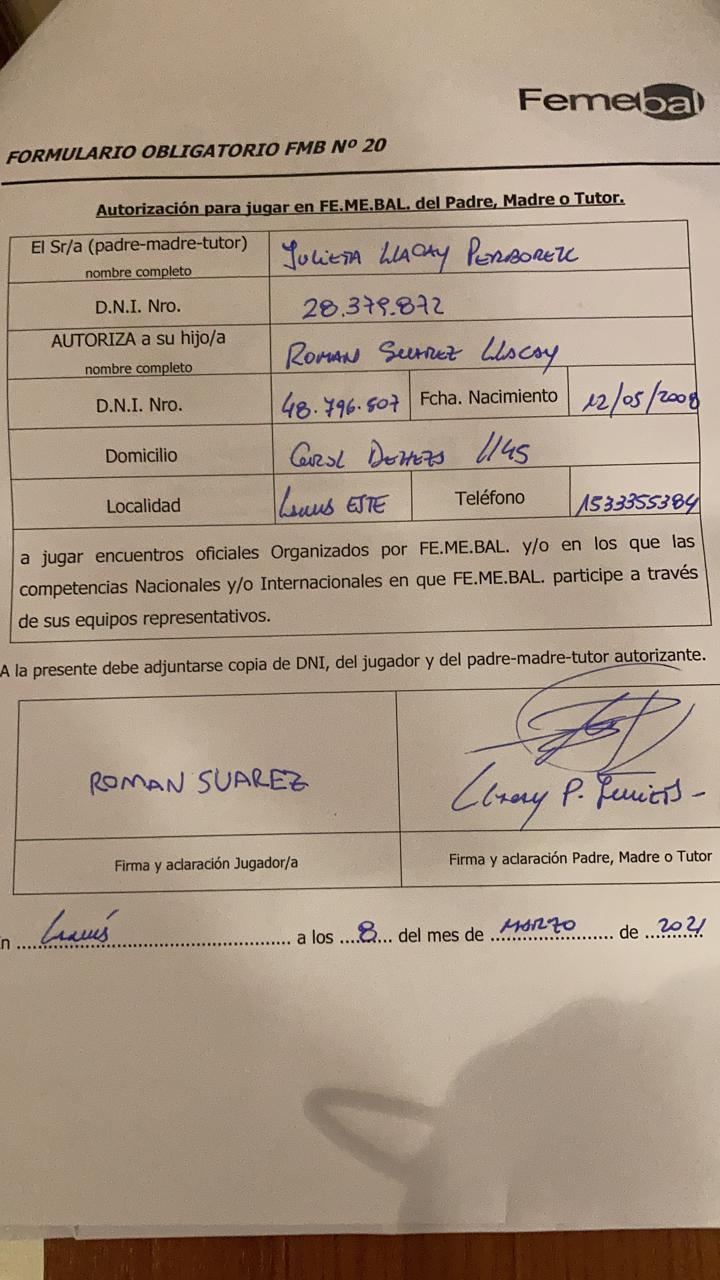 Femebal
FORMULARIO OBLIGATORIO FMB Nº 20
Autorización para jugar en FE.ME.BAL. del Padre, Madre o Tutor.
El Sr/a (padre-madre-tutor)
nombre completo
JULIETA LLACAY
D.N.I. Nro.
28.379.872
AUTORIZA a su hijo/a
nombre completo
ROMAN SUAREZ LLACAY
D.N.I. Nro.
48.796.507
Fcha. Nacimiento
12/05/2008
Domicilio
1145
Localidad
Lanus ESTE
Teléfono
1533355384
a jugar encuentros oficiales Organizados por FE.ME.BAL. y/o en los que las
competencias Nacionales y/o Internacionales en que FE.ME.BAL. participe a través
de sus equipos representativos.
A la presente debe adjuntarse copia de DNI, del jugador y del padre-madre-tutor autorizante.
ROMAN SUAREZ
Llacay P. Julieta -
Firma y aclaración Jugador/a
Firma y aclaración Padre, Madre o Tutor
n Lanús a los 8 del mes de MARZO de 2021